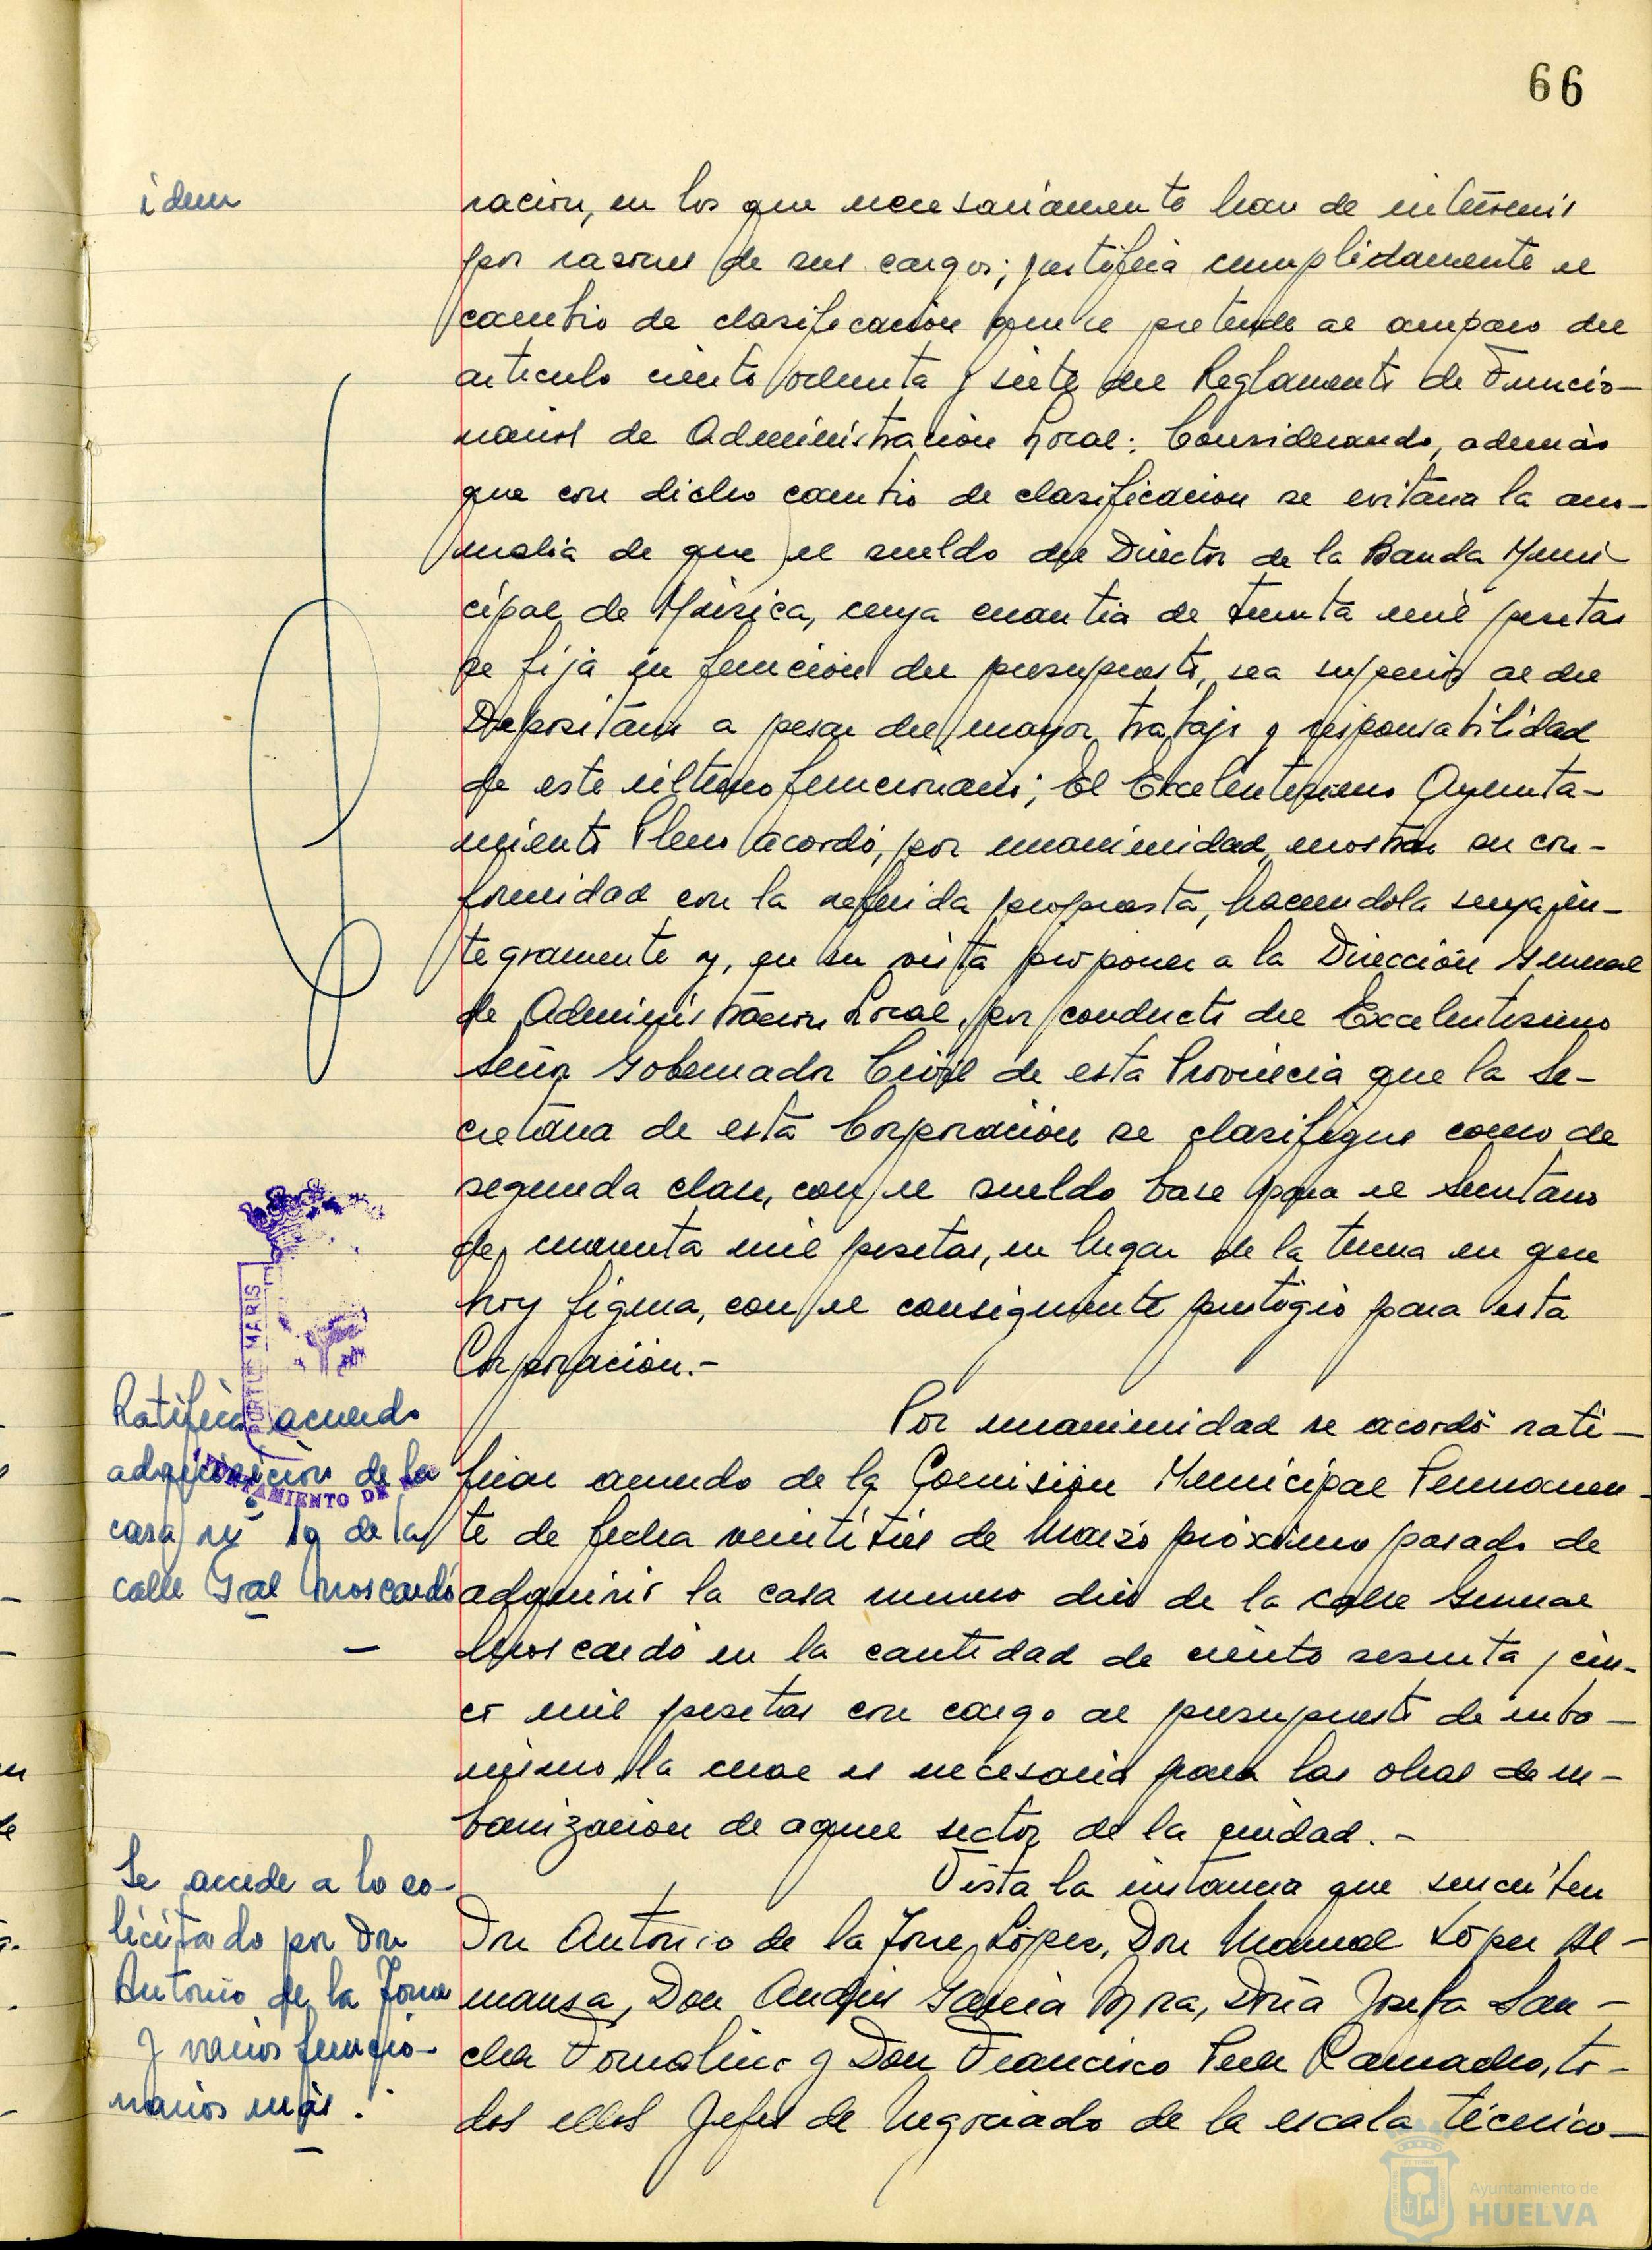 66
idem
ración, en los que necesariamente han de intervenir
por razones de sus cargos; justifica cumplidamente el
cambio de clasificación que se pretende al amparo del
articulo ciento ochenta y siete del Reglamento de Funcio-
narios de Administración Local: Considerando, además
que con dicho cambio de clasificación se evitaria la ano-
malia de que el sueldo del Director de la Banda Muni-
cipal de Música, cuya cuantia de treinta mil pesetas
se fija en función del presupuesto, sea superior al del
Depositario a pesar del mayor trabajo y responsabilidad
de este último funcionario; El Excelentisimo Ayunta-
miento Pleno acordó, por unanimidad, mostrar su con-
formidad con la referida propuesta, haciendola suya in-
tegramente y, en su vista proponer a la Dirección General
de Administración Local, por conducto del Excelentisimo
Señor Gobernador Civil de esta Provincia que la Se-
cretaria de esta Corporación se clasifique como de
segunda clase, con el sueldo base para el Secretario
de cuarenta mil pesetas, en lugar de la tercera en que
hoy figura, con el consiguiente prestigio para esta
Corporación.-
PORTUS MARIS
AYUNTAMIENTO DE
Ratifica acuerdo
adquisición de la
casa nº 19 de la
calle Gral Moscardó
Por unanimidad se acordó rati-
ficar acuerdo de la Comisión Municipal Permanen-
te de fecha veintitres de Marzo próximo pasado de
adquirir la casa numero diez de la calle General
Moscardó en la cantidad de ciento sesenta y cin-
co mil pesetas con cargo al presupuesto de urba-
nismo, la cual es necesaria para las obras de ur-
banización de aquel sector de la ciudad.-
Se accede a lo so-
licitado por Don
Antonio de la Torre
y varios funcio-
narios más.
Vista la instancia que suscriben
Don Antonio de la Torre López, Don Manuel López Al-
mansa, Don Andrés Garcia Mora, Doña Josefa San-
chez Tornalino y Don Francisco Peña Camacho, to-
dos ellos Jefes de Negociado de la escala técnico-
Ayuntamiento de
HUELVA